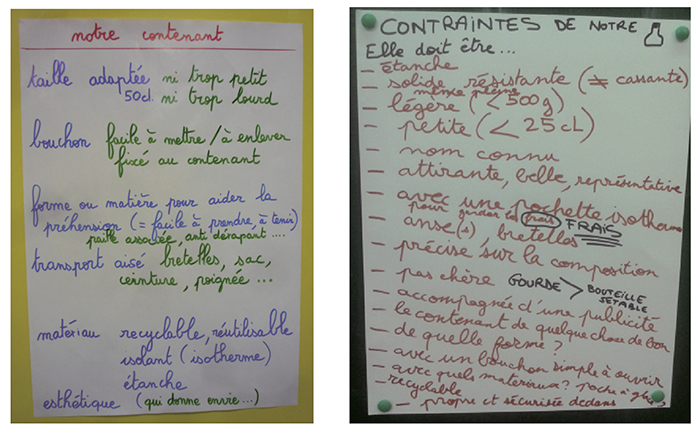 notre contenant
taille adaptée ni trop petit
50cl. ni trop lourd
bouchon facile à mettre / à enlever
fixé au contenant
forme ou matière pour aider la
préhension (= facile à prendre à tenir)
paille associée, anti dérapant ....
transport aisé bretelles, sac,
ceinture, poignée ...
matériau recyclable, réutilisable
isolant (isotherme)
étanche
esthétique (qui donne envie...)
CONTRAINTES DE NOTRE
Elle doit être ...
- étanche
- solide résistante (≠ cassante)
même pleine
- légère (< 500g)
- petite (< 25 cL)
- nom connu
- attirante, belle, représentative
- avec une pochette isotherme
pour garder le frais FRAIS
- anse(s), bretelles
- précise sur la composition
- pas chère GOURDE > BOUTEILLE JETABLE
- accompagnée d'une publicité
- le contenant de quelque chose de bon
- de quelle forme ?
- avec un bouchon simple à ouvrir
- avec quels matériaux ? poche à
- recyclable
- propre et sécurisée dedans